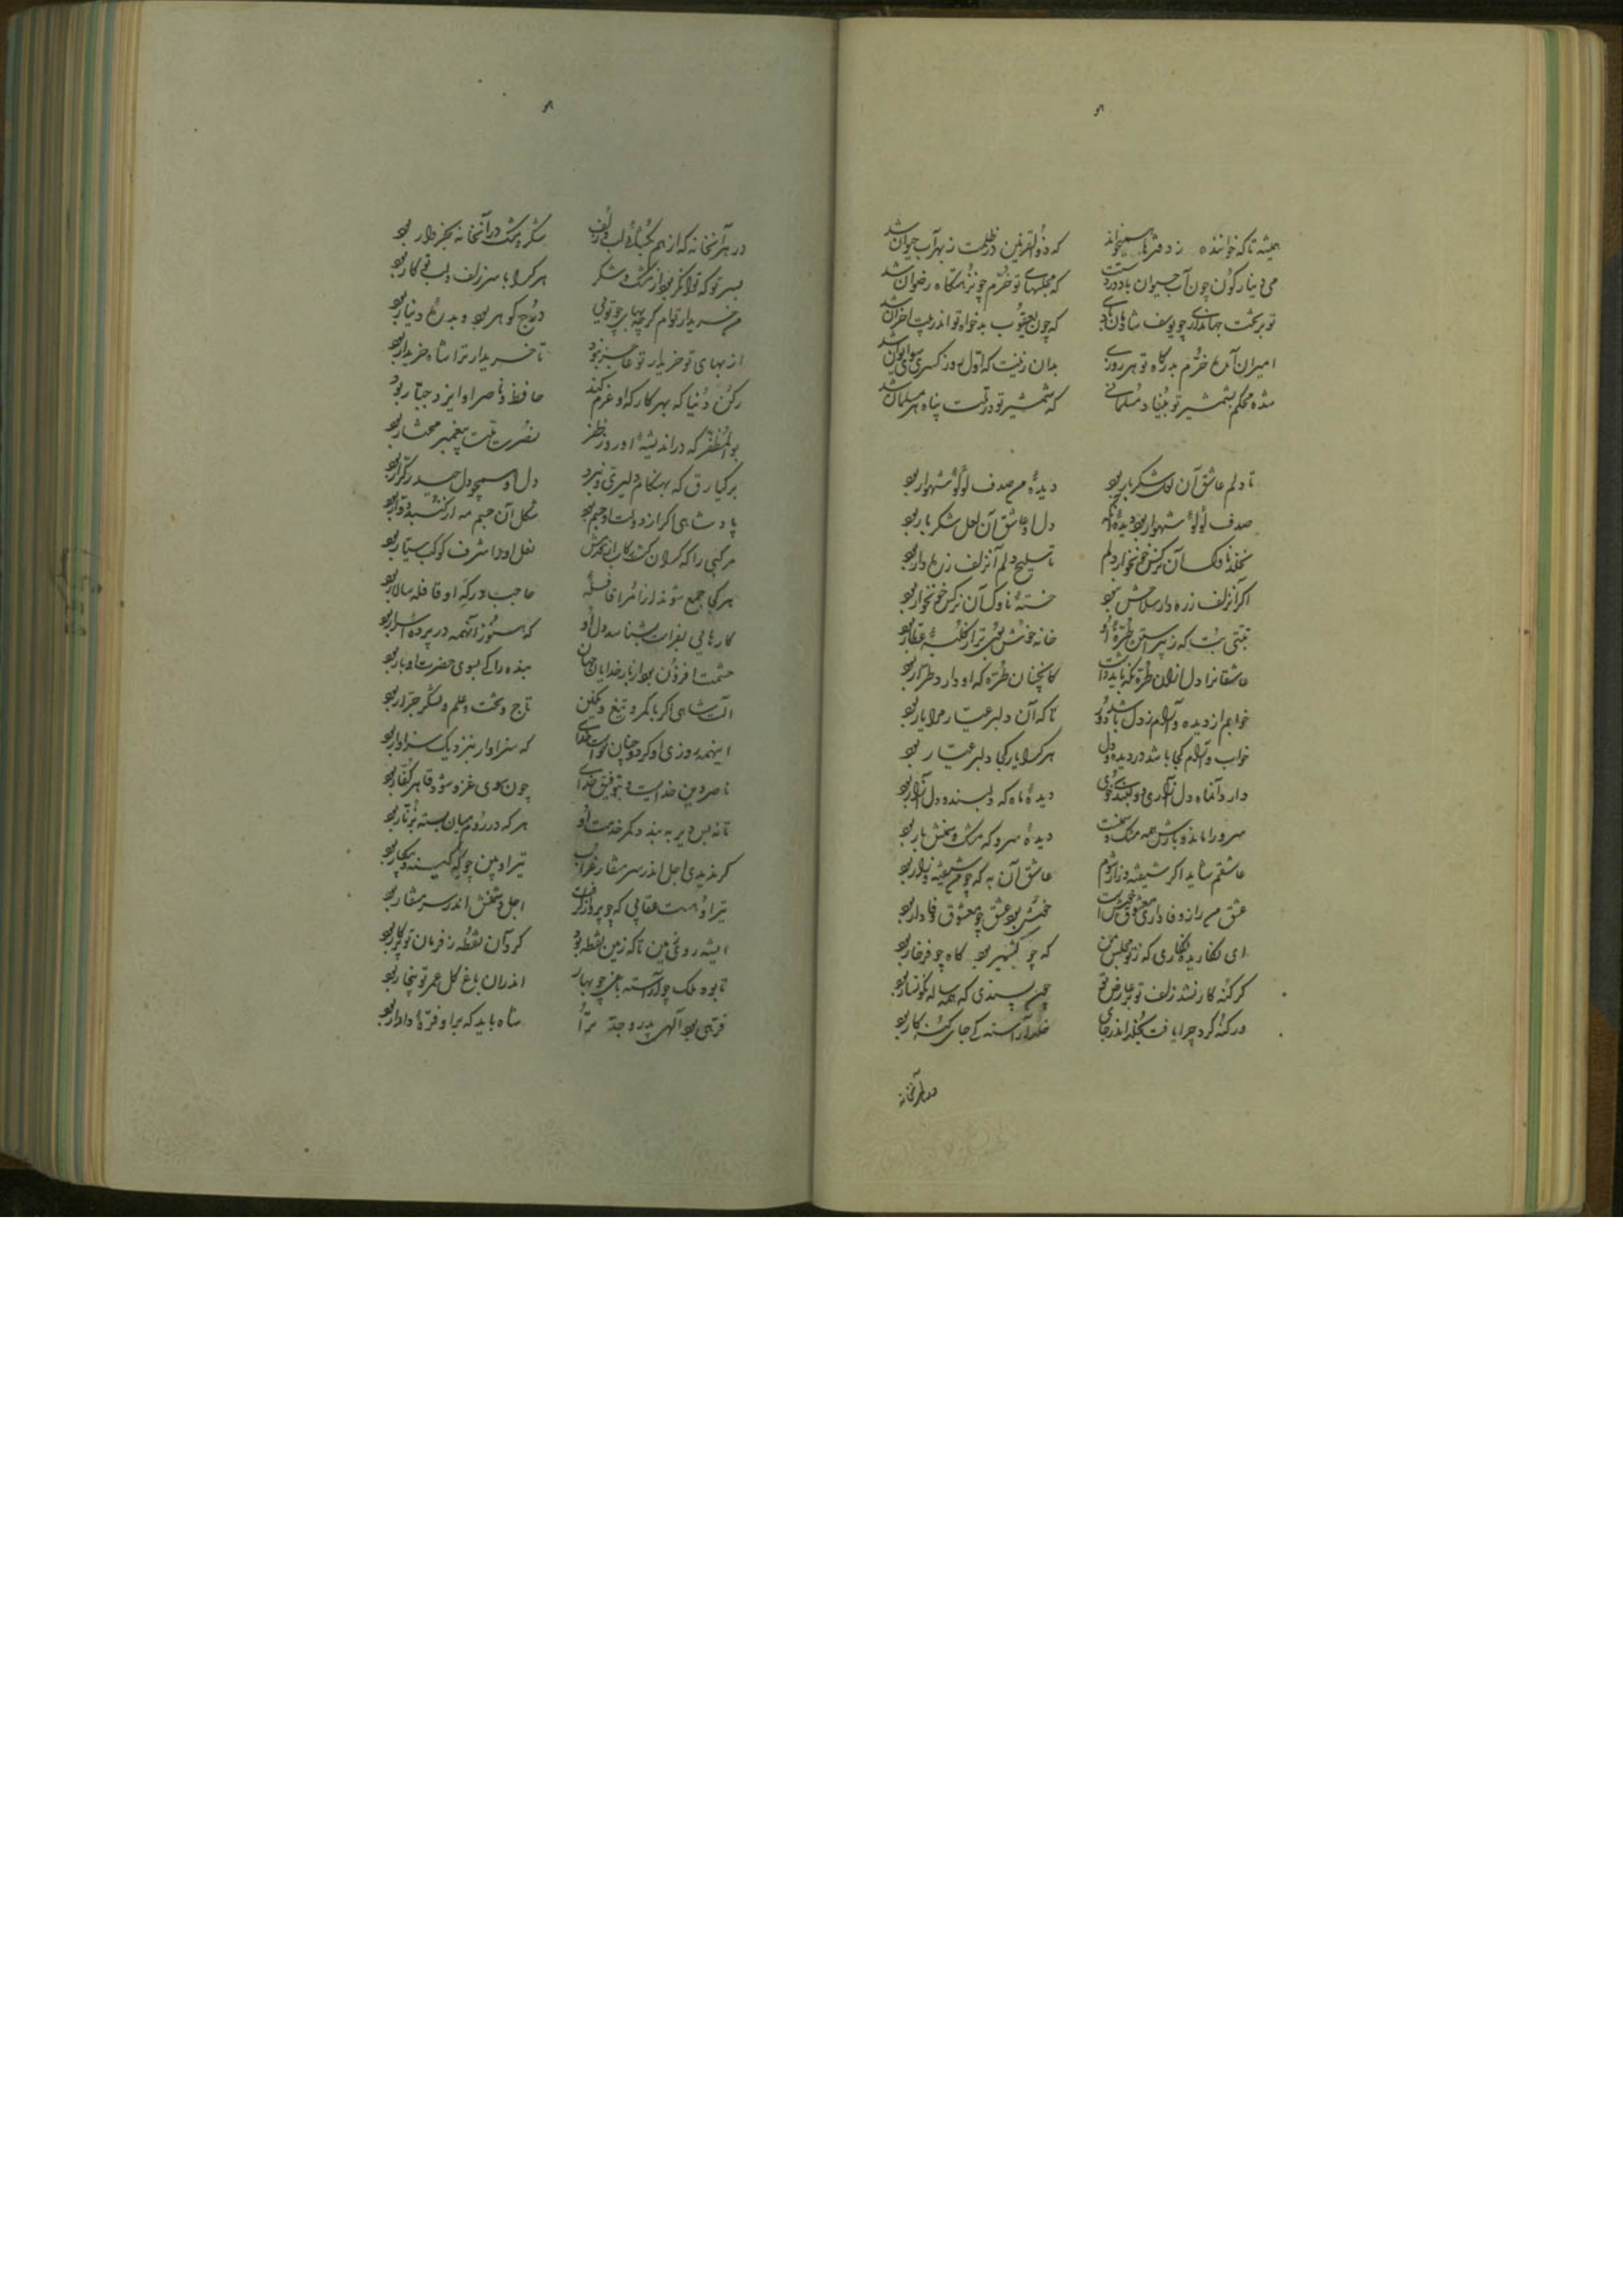 همیشه تا که خواننده ز دفترها همیخواند که ذوالقرنین در ظلمت ز بهر آب حیوان شد
می دینار گون چون آب حیوان باد در دستت که مجلسهای تو خرم چو نزهتگاه رضوان شد
تو بر تخت جهانداری چو یوسف شادمان بادی که چون یعقوب بدخواه تو اندر بیت احزان شد
امیران آمده خرم بدرگاه تو هر روزی بدان زینت که اول روز کسری سوی ایوان شد
شده محکم بشمشیر تو بنیاد مسلمانی که شمشیر تو در ملت پناه هر مسلمان شد
تا دلم عاشق آن لعل شکر بار بود دیدهٔ من صدف لؤلؤ شهوار بود
صدف لؤلؤ شهوار بود دیدهٔ آنک دل او عاشق آن لعل شکر بار بود
نخلد ناوک آن نرگس خونخوار دلم تا سلیح دلم آنزلف زره دار بود
اگر آنزلف زره دار سلاحش نبود خستهٔ ناوک آن نرگس خونخوار بود
تبتی بت که ز پیراستن طرهٔ او خانه خوشبوی تر از کلبهٔ عطار بود
عاشقانرا دل از آن طره نگه باید داشت کانچنان طره که او دارد طرار بود
خوابم از دیده و آرام ز دل باشد دور تا که آن دلبر عیار مرا یار بود
خواب و آرام کجا باشد در دیده و دل هر کرا یار کجا دلبر عیار بود
دارد آنماه دل آزاری و دلبندی خوی دیدهٔ ماه که دلبند و دل آزار بود
سرو را ماند و بارش همه مشک و سخنست دیدهٔ سرو که مشک و سخنش بار بود
عاشقم شاید اگر شیفته و زار شوم عاشق آن به که چو من شیفته و زار بود
عشق من راز وفاداری معشوق خوشست خوش بود عشق چو معشوق وفادار بود
ای نگاریده نگاری که ز تو مجلس من گه چو کشمیر بود گاه چو فرخار بود
گر گنه کار نشد زلف تو بر عارض تو چون پسندی که همه ساله نگونسار بود
ور گنه کرد چرا یافت بخلد اندر جای خلد آراسته کی جای گنه کار بود
در هر آنخانه
در هر آنخانه که از هم بگشائی لب و زلف شکر و مشک در آنخانه بخروار بود
بسر تو که توانگر بود از مشک و شکر هر کرا با سر زلف و لب تو کار بود
من خریدار توام گرچه بها بر چو توئی درج گوهر بود و بدرهٔ دینار بود
از بهای تو خریدار تو عاجز نبود تا خریدار ترا شاه خریدار بود
رکن دنیا که بهر کار که او عزم کند حافظ و ناصر او ایزد جبار بود
بوالمظفر که در اندیشهٔ او روز ظفر نصرت ملت پیغمبر مختار بود
برکیارق که بهنگام دلیری و نبرد دل او همچو دل حیدر کرار بود
پادشاهی اگر از دولت او جسم بود شکل آن جسم مه از گنبد دوار بود
مرکبی را که گران گشت رکاب از قدمش نعل او را شرف کوکب سیار بود
هر کجا جمع شوند از امرا قافلهٔ حاجب درگه او قافله سالار بود
کارهایی بفراست بشناسد دل او که هنوز آنهمه در پرده اسرار بود
حشمت افزون بود از بار خدایان جهان بنده را کی بسوی حضرت او بار بود
آلت شاهی اگر با کمر و تیغ و نگین تاج و تخت و علم و لشکر جرار بود
اینهمه روزی او کرد و چنان خواست خدای که سزاوار بنزدیک سزاوار بود
ناصر دین خدایست و بتوفیق خدای چون سوی غزو شود قاهر کفار بود
تا نه بس دیر به بندد کمر خدمت او هر که در روم میان بسته بزنار بود
گر ندیدی اجل اندر سر منقار غراب تیر او بین چو گه کینه و پیکار بود
تیر او هست عقابی که چو پرواز کند اجل دشمنش اندر سر منقار بود
ای شه روی زمین تا که زمین نقطه بود گرد آن نقطه ز فرمان تو پرگار بود
تا بود ملک چو آراسته باغی چو بهار اندران باغ گل عمر تو بیخار بود
فرهی بود آلهی پدر و جد ترا شاه باید که برا و فره دادار بود